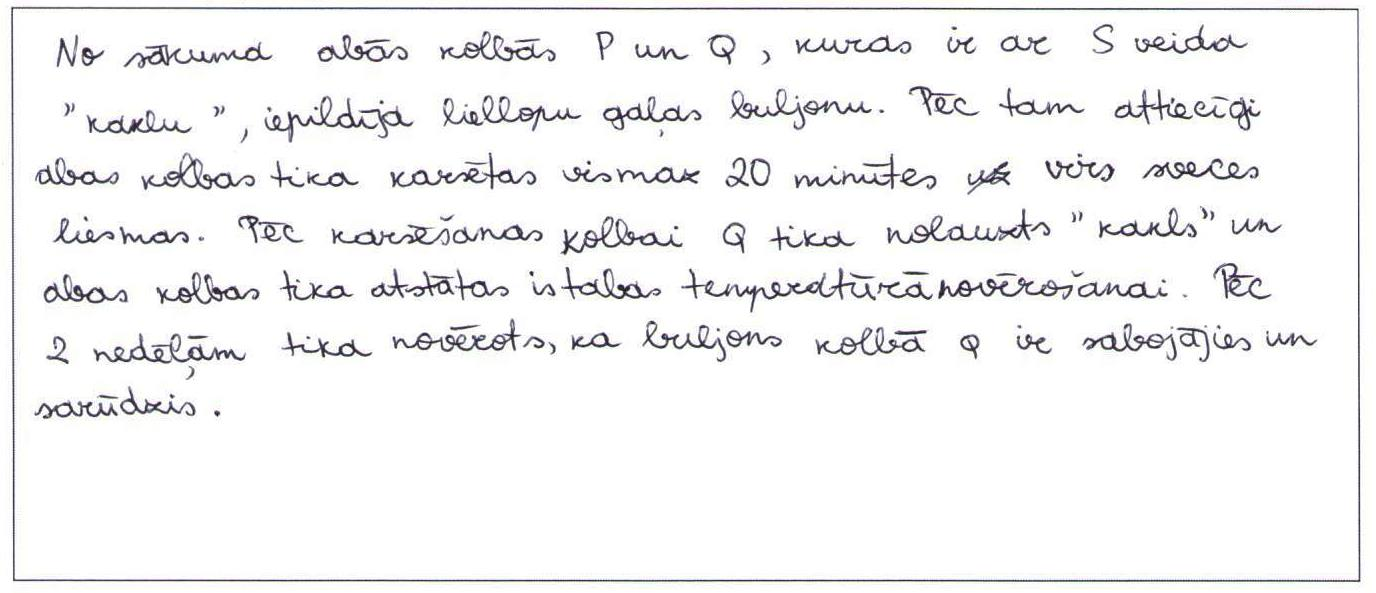 No sākuma abās kolbās P un Q, kuras ir ar S veida
"kaklu", iepildīja liellopu gaļas buljonu. Pēc tam attiecīgi
abas kolbas tika karsētas vismaz 20 minūtes virs sveces
liesmas. Pēc karsēšanas kolbai Q tika nolauzts "kakls" un
abas kolbas tika atstātas istabas temperatūrā novērošanai. Pēc
2 nedēļām tika novērots, ka buljons kolbā Q ir sabojājies un
sarūdzis.